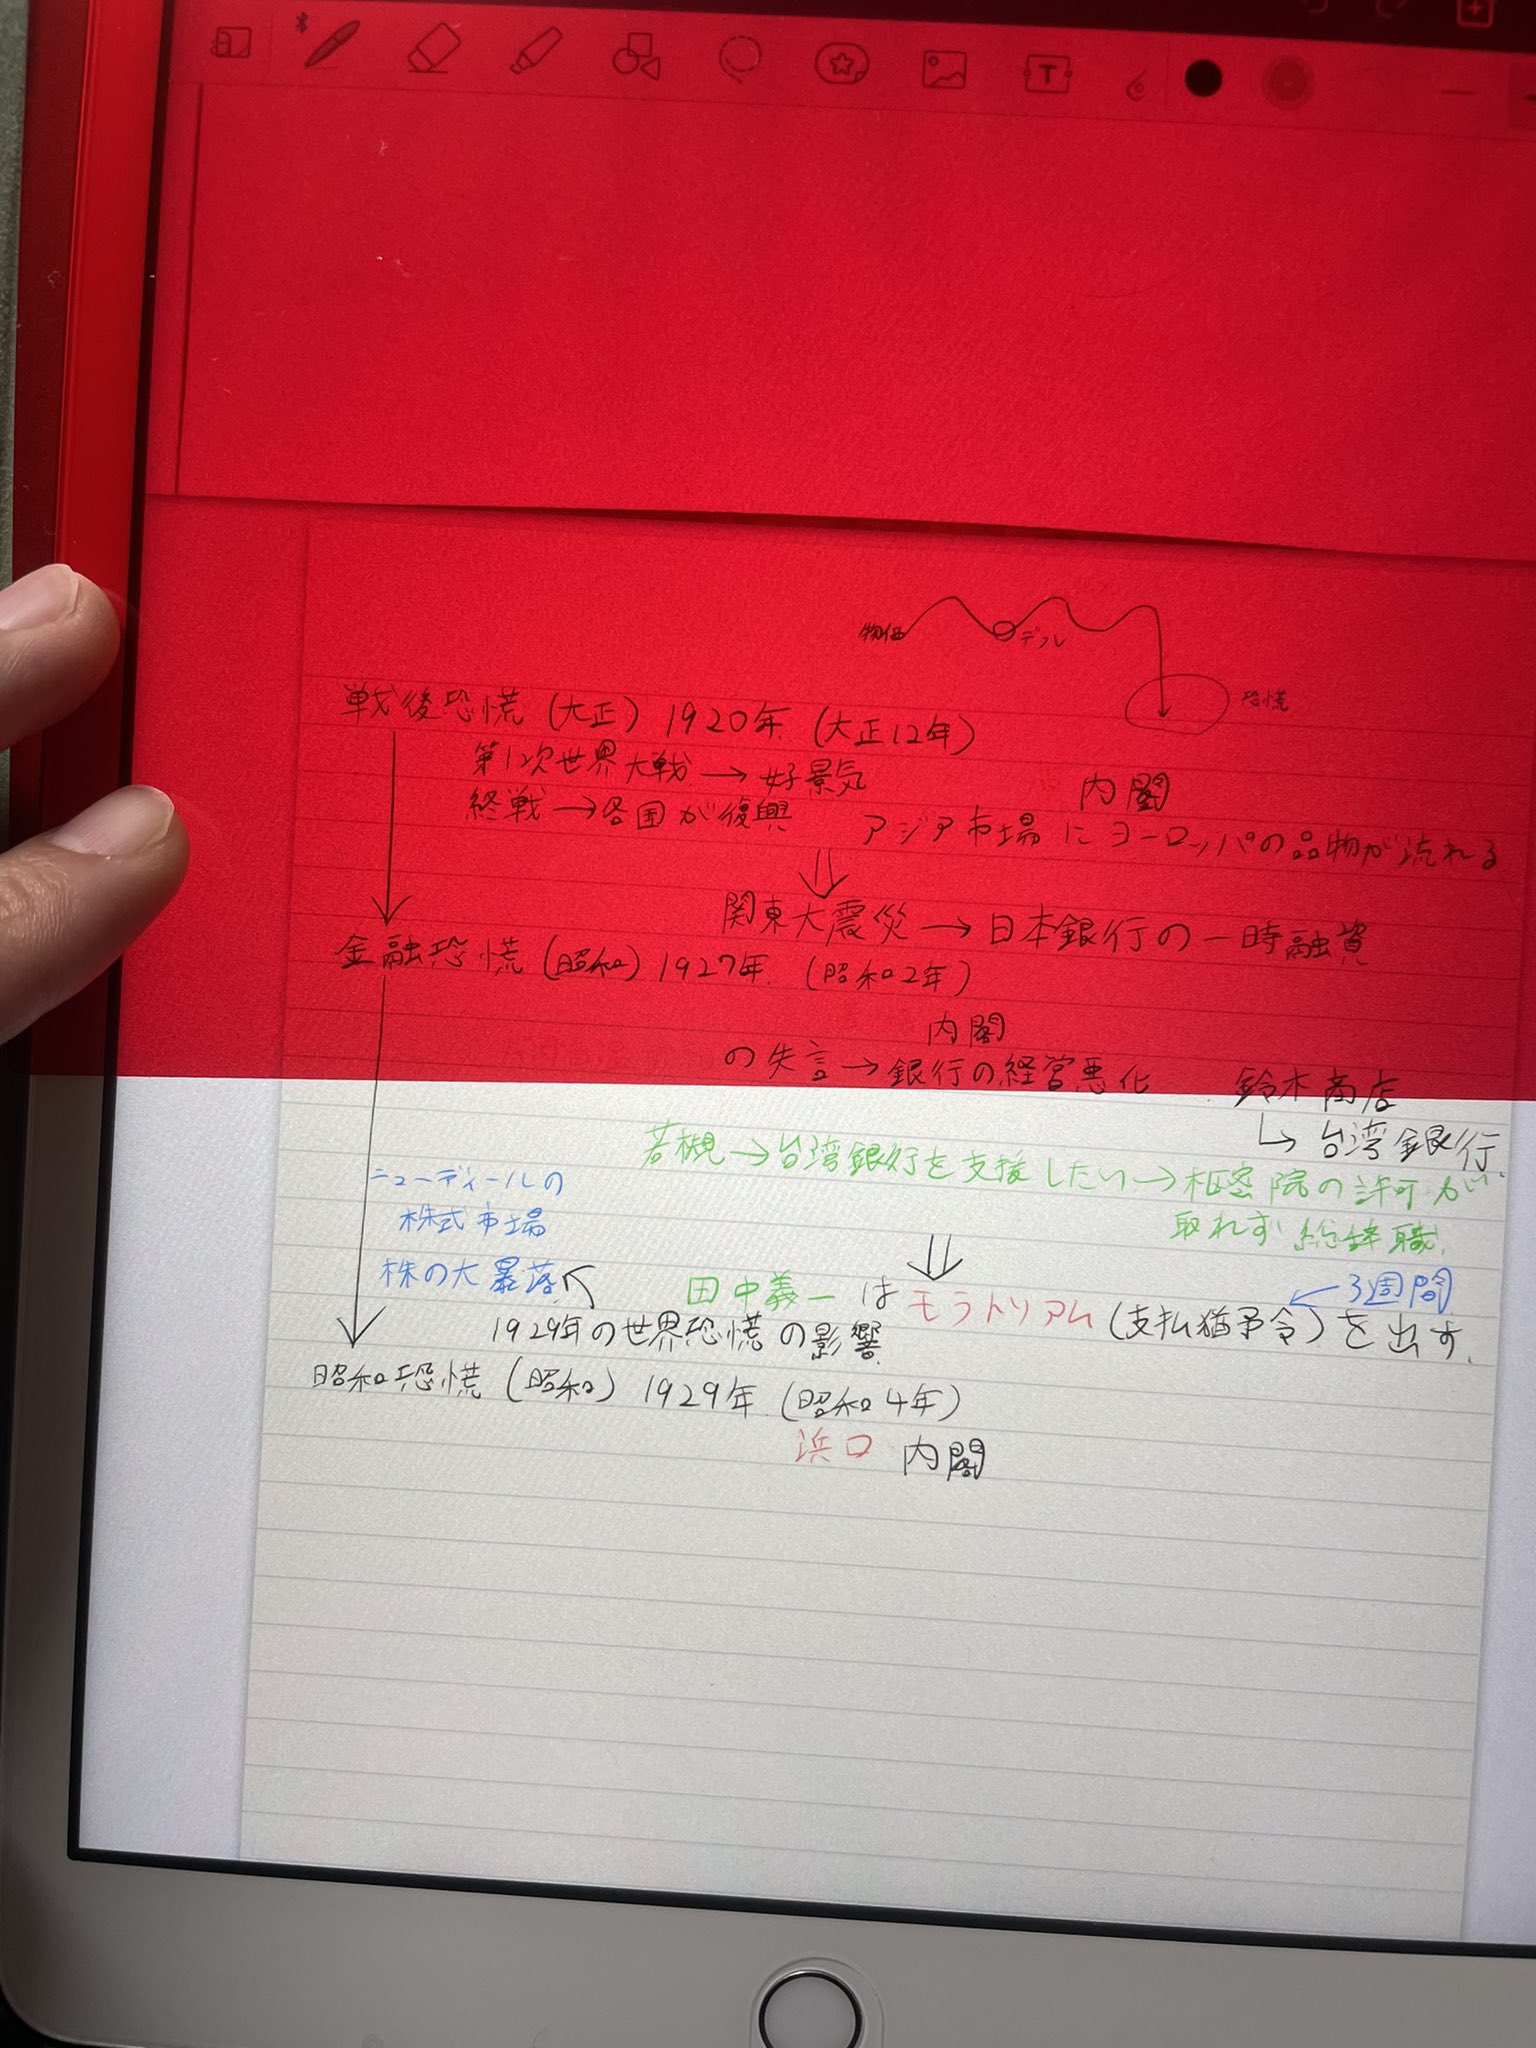 物価
デフレ
恐慌
戦後恐慌(大正) 1920年 (大正12年)
第1次世界大戦→好景気
内閣
終戦→各国が復興
アジア市場にヨーロッパの品物が流れる
関東大震災→日本銀行の一時融資
金融恐慌(昭和) 1927年 (昭和2年)
内閣
の失言→銀行の経営悪化
鈴木商店
台湾銀行
若槻→台湾銀行を支援したい→枢密院の許可が
取れず総辞職
ニューディールの
株式市場
株の大暴落
3週間
田中義一はモラトリアム(支払猶予令)を出す。
1929年の世界恐慌の影響
昭和恐慌(昭和) 1929年 (昭和4年)
浜口 内閣